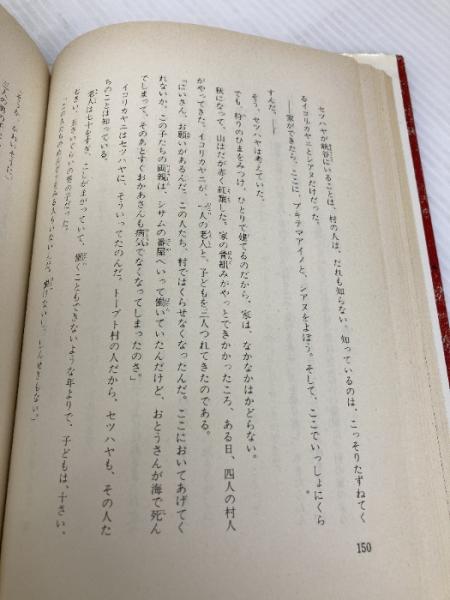 セツハヤが熊谷にいることは、村の人は、だれも知らない。知っているのは、こっそりたずねてく
るイコリカヤニとシアヌだけだった。
――家ができたら、ここに、プキテマアイノと、シアヌをよぼう。そして、ここでいっしょにくら
すんだ。――
そう、セツハヤは考えていた。
でも、狩りのひまをみつけ、ひとりで建てるのだから、家は、なかなかはかどらない。
秋になって、山はだが赤く紅葉した。家の骨組みがやっとできかかったころ、ある日、四人の村人
がやってきた。イコリカヤニが、一人の老人と、子どもを三人つれてきたのである。
「にいさん、お願いがあるんだ。この人たち、村ではくらせなくなったんだ。ここにおいてあげてく
れないか。この子たちの両親は、シサムの番屋へいって働いていたんだけど、おとうさんが海で死ん
でしまって、そのあとすぐおかあさんも病気でなくなってしまったのさ。」
イコリカヤニはセツハヤに、そういってたのんだ。トープト村の人だから、セツハヤも、その人た
ちのことは知っている。
老人は七十をすぎ、こしがまがっていて、働くこともできないような年よりで、子どもは、十さい、
七さい、五さいぐらいの男の子だった。
「この人たちのめんどうをみる人もいないんだ。働けないし、
150